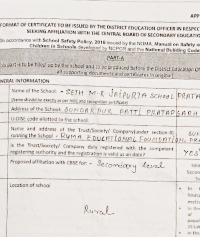 APP
FORMAT OF CERTIFICATE TO BE ISSUED BY THE DISTRICT EDUCATION OFFICER IN RESPE
SEEKING AFFILIATION WITH THE CENTRAL BOARD OF SECONDARY EDUCATION
In accordance with School Safety Policy, 2016 issued by the NDMA, Manual on Safety o
Children in Schools developed by NCPCR and the National Building Code
PART-A
This part is to be filled up by the school and to be produced before the District Education O
of supporting documents and certificates in original
GENERAL INFORMATION
Name of the School - SETH M.R JAIPURIA SCHOOL PRAT
(Name should be exactly as per NOC and recognition certificate)
Address of the School SUNDARPUR PATTI PRATAPGARH
U-DISE code allotted to the school.
Name and address of the Trust/Society/ Company(under section 8)
running the School - RUMA EDUCATIONAL FOUNDATION, PRA
Is the Trust/Society/ Company duly registered with the competent
registering authority and the registration is valid as on date?
YES
Proposed affiliation with CBSE for - Secondary level
Location of school
Rural